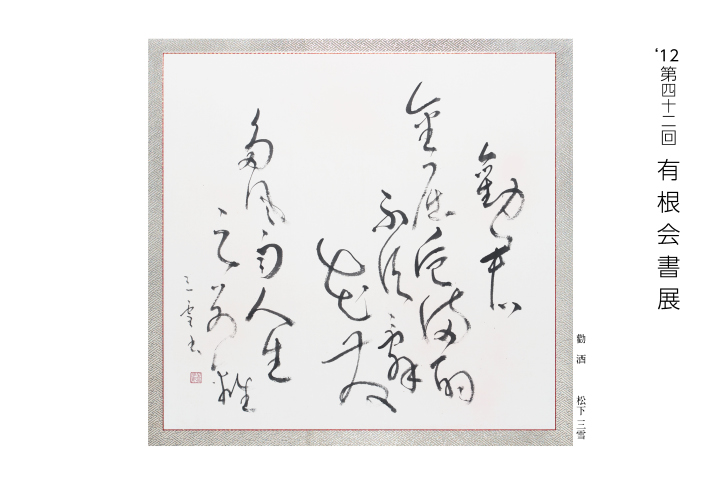 '12 第四十二回 有根会書展
勸酒 松下三雪
勸君
金屈卮滿酌
不須辭
花發
多風
雨人生
足別離
三雪書